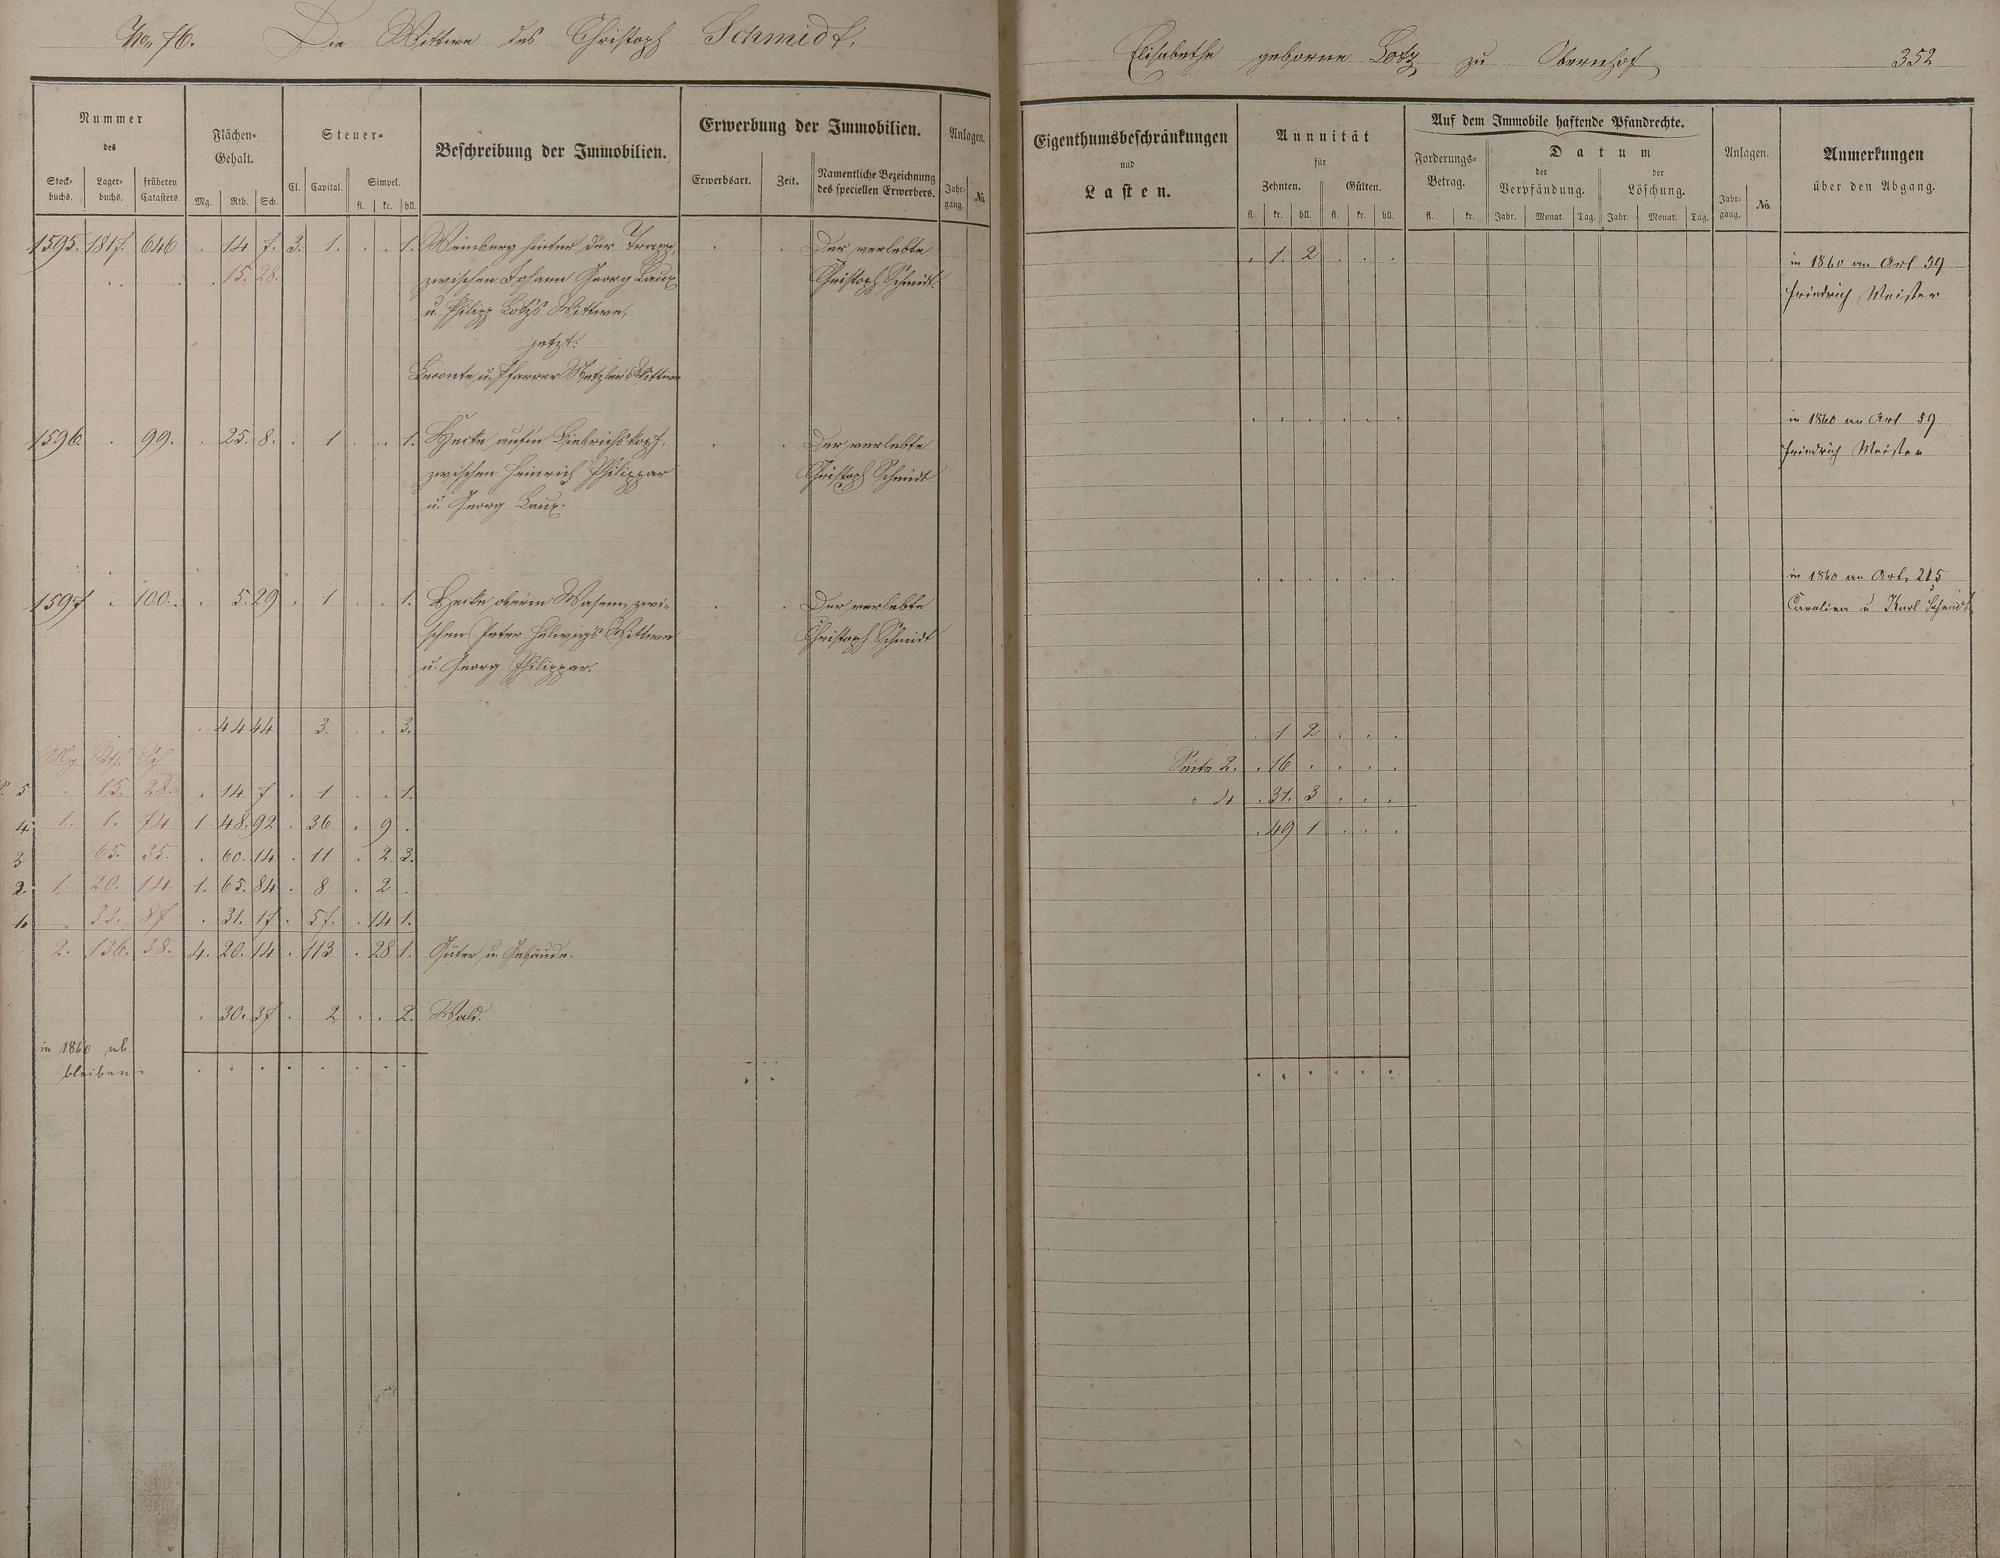 No. 76. Die Wittwe des Christoph Schmidt,
Elisabethe geborne Lotz zu Obernhof 352
Nummer des
Stock-buchs. Lager-buchs. früheren Catasters.
Flächen-Gehalt.
Mg. Rth. Sch.
Steuer-
Cl. Capital. Simpel.
fl. kr. hll.
Beschreibung der Immobilien.
Erwerbung der Immobilien.
Erwerbsart. Zeit. Namentliche Bezeichnung des speciellen Erwerbers.
Anlagen.
Jahr-gang. No.
Eigenthumsbeschränkungen
und
Lasten.
Annuität
für
Zehnten. Gülten.
fl. kr. hll. fl. kr. hll.
Auf dem Immobile haftende Pfandrechte.
Forderungs-Betrag.
fl. kr.
Datum
der Verpfändung. der Löschung.
Jahr. Monat. Tag. Jahr. Monat. Tag.
Anlagen.
Jahr-gang. No.
Anmerkungen
über den Abgang.
1595. 1817. 646 . 14 7. 3. 1. . . 1. Weinberg hinter der Trapp, . . Der verlebte
15. 28. zwischen Johann Georg Laux Christoph Schmidt.
u. Philipp Lotz's Wittwe,
jetzt:
Leconte u. Pfarrer Metzler's Wittwe
. 1. 2 . . .
in 1860 an Art 59
Friedrich Meister
1596. . 99. . 25. 8. . 1 . . 1. Hecke auf'm Liebrichskopf, . . Der verlebte
zwischen Heinrich Philippar Christoph Schmidt
u. Georg Laux.
in 1860 an Art 59
Friedrich Meister
1597 . 100. . 5. 29 . 1 . . 1. Hecke ober'm Wasem, zwi- . . Der verlebte
schen Peter Helwig's Wittwe Christoph Schmidt
u. Georg Philippar.
in 1860 an Art. 215
Carolina u Karl Schmidt
. 44 44 3. . . 3.
Mg Rth. Sch
5 . 15. 28. . 14 7 . 1 . . 1.
4. 1. 1. 74 1 48. 92 . 36 . 9 .
3 65. 35. . 60. 14 . 11 . 2 3.
2. 1 20. 14 1. 65. 84 . 8 . 2 .
1. . 33. 87 . 31. 17 . 57. . 14 1.
2. 136. 38. 4. 20. 14 . 113 . 28 1. Güter u. Gebäude.
. 30. 37 . 2 . . 2. Wald.
in 1860 ab
bleiben
. 1 2 . . .
Seite 2. . 16 . . . .
" 4 . 31. 3 . . .
. 49 1 . . .